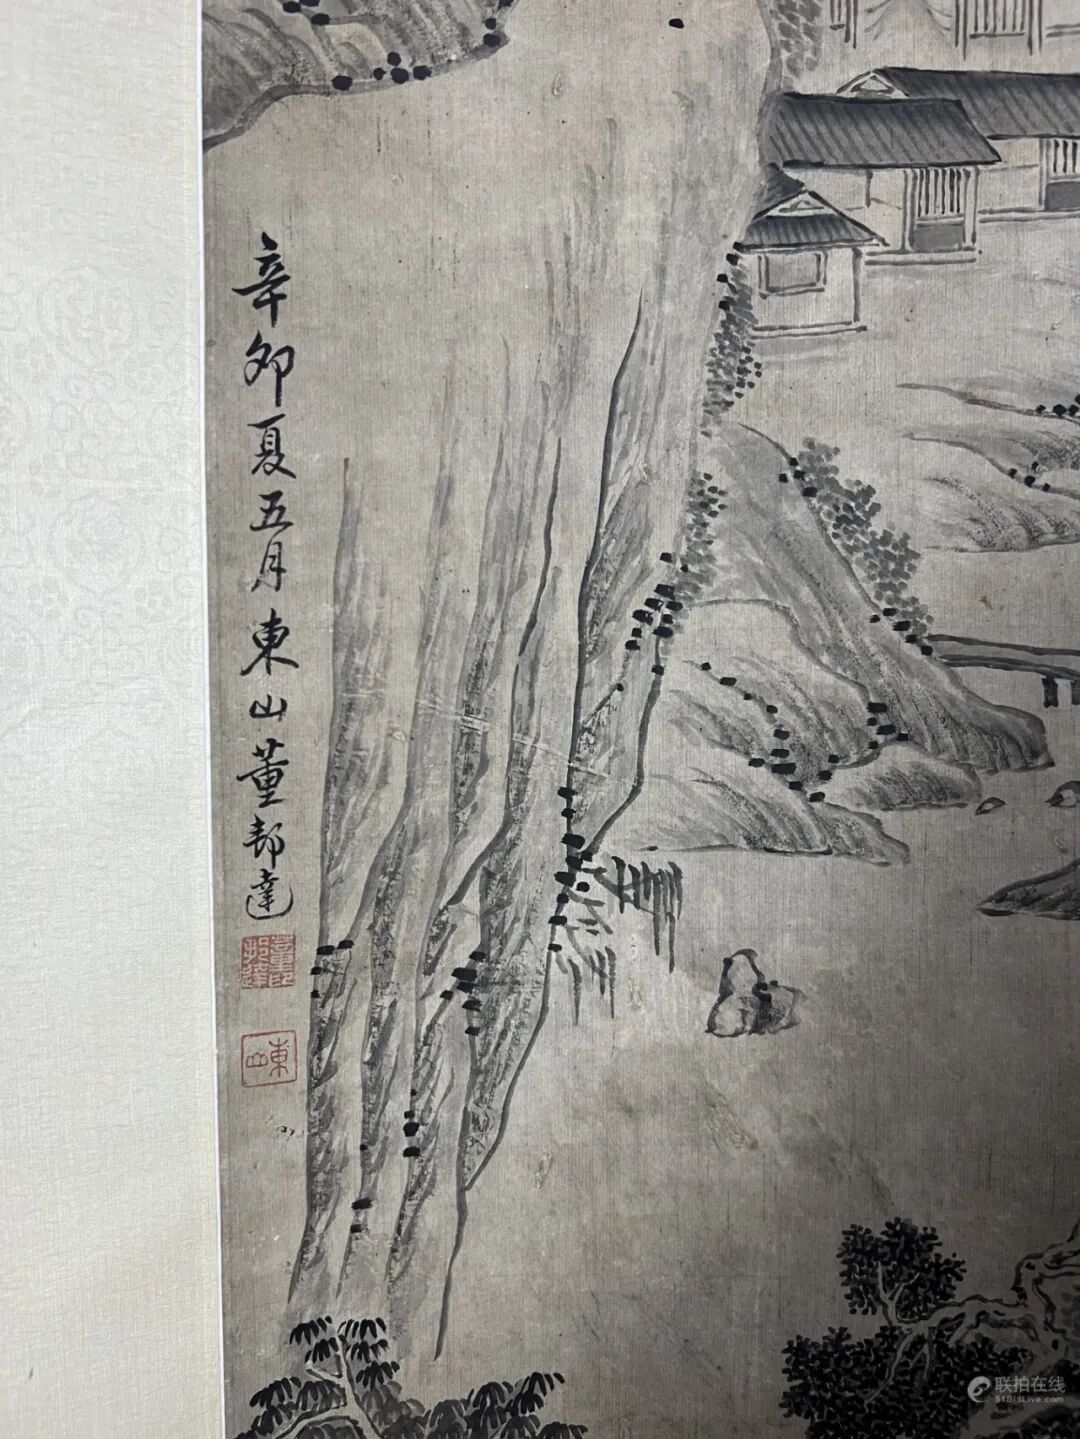 辛夘夏五月東山董邦達
董邦達
東山
联拍在线
51BidLive.com